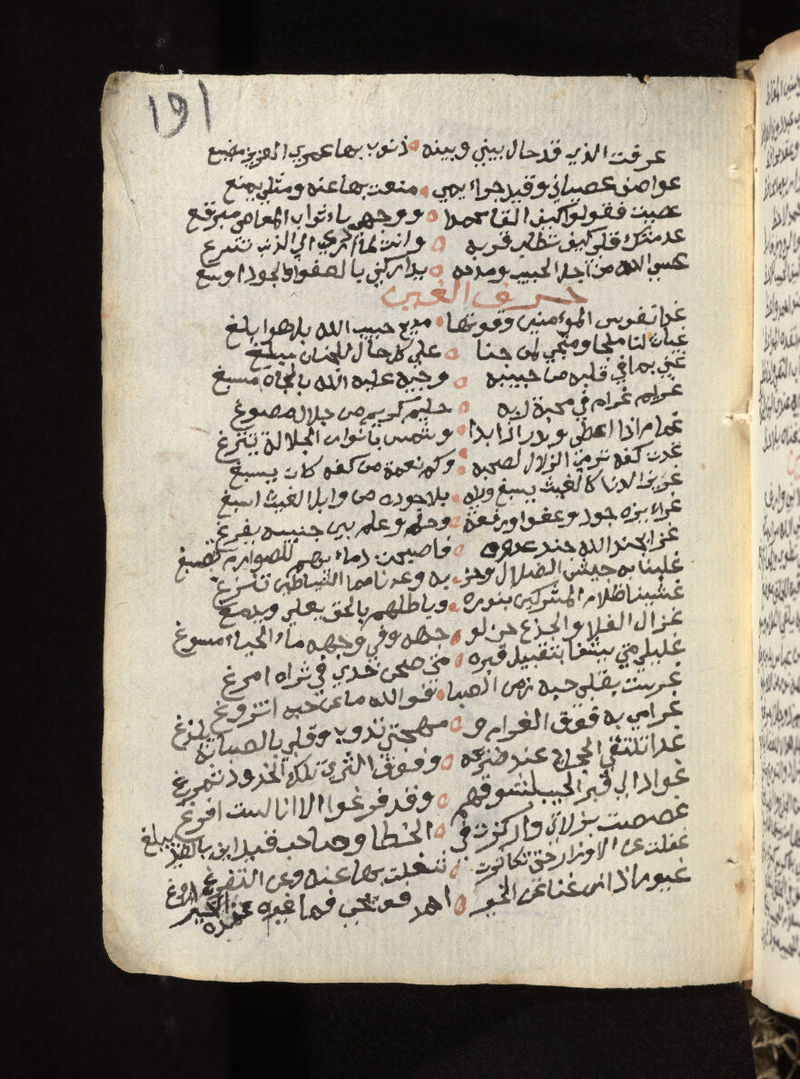 ١٥١
عرفت الذي قد حال بيني وبينه ذنوب بها عمري العزيز مضيع
عواصف عصياني وقيد جرائمي منعت بها عنه ومثلي يمنع
عصيت فقولوا كيف القا محمدا ووجهي باثواب المعاصي مبرقع
عدمتك قلبي كيف تطلب قربه وانت لما الذي تتبرع
عسى الله من اجل الحبيب ومدحه يداركني بالعفو والجود اوسع
حرف الغين
غدا نفوس المؤمنين وقوتها مديح حبيب الله بل هو ابلغ
غياث لنا ملجا ومنجي لمن جنا على كل حال للجنان يبلغ
غني بما في قلبه من حبيبه وجيه عليه الله بالجاه مسبغ
غرامي غرام في محبة لربه حليم كريم من جلال مصوغ
غمام اذا اعطى وبدر اذا بدا وشمس بانوار الجلالة تبزغ
غدت كفه تروي الزلال لصحبه وكم نعمة من كفه كان يسبغ
غزير الندا كالغيث يسبغ وبله بلا جوده من وابل الغيث اسبغ
وعفوا ورفعة وحلم وعلم بين جنبيه يفرغ
غزا بجند الله جند عدوه فاصبحت دماءهم للصوارم تصبغ
غلبنا به جيش الضلال وحزبه وعدنا مما الشياطين تنزغ
غشينا ظلام المشركين بنوره وباطلهم بالحق يعلى ويدمغ
غزال الفلا والجذع حن لو وفي وجهه ماء الحياء مسوغ
غليلي متى يشفا بتقبيل قبره متى صحن خدي في ثراه امرغ
غريت بقلبي حبه زمن الصبا فوالله ما عن حبه
غرامي به فوق الغرام و مهجتي تذوب وقلبي بالصبابة يلدغ
غدا تلتقي الحجاج عند ضريحه وفوق الثرى تلك الخدود تمرغ
غوادا الى قبر الحبيب لشوقهم وقد فرغوا الا انا لست افرغ
غصصت بزلاتي واركزت في الخطا وصاحب قيد اين بالقيد يبلغ
غفلت عن الاوزار حتى تكاثرت شغلت بها عنه وعن التفرغ
غيور اذا